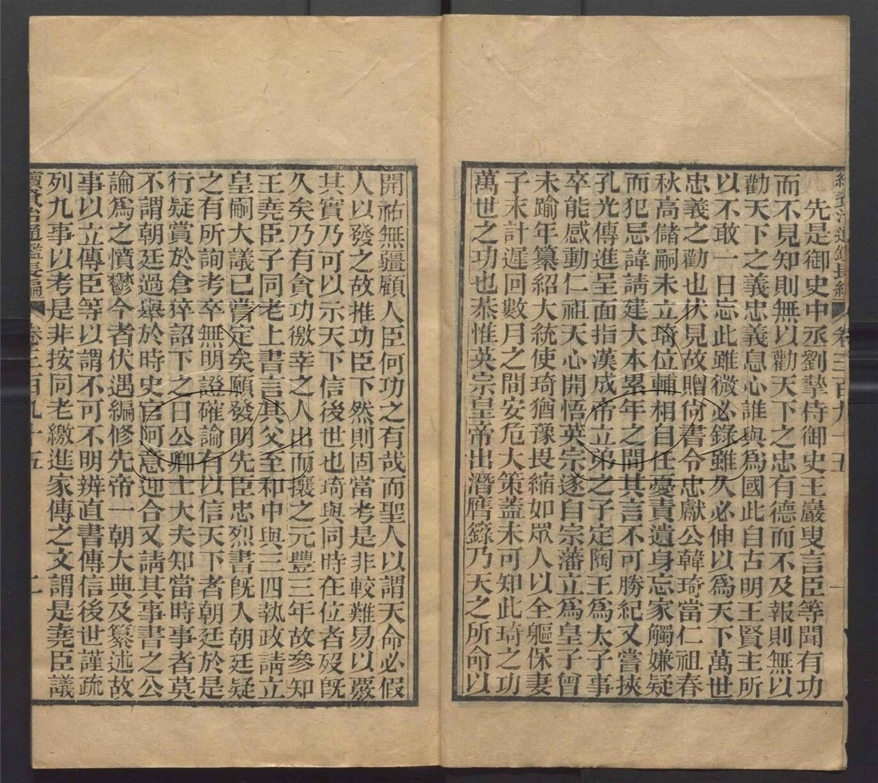 續資治通鑑長編 卷三百九十五 一
先是御史中丞劉摯侍御史王巖叟言臣等聞有功
而不見知則無以勸天下之忠有德而不及報則無以
勸天下之義忠義息心誰與為國此自古明王賢主所
以不敢一日忘此雖微必錄雖久必伸以為天下萬世
忠義之勸也伏見故贈尚書令忠獻公韓琦當仁祖春
秋高儲嗣未立琦位輔相自任憂責遺身忘家觸嫌疑
而犯忌諱請建大本累年之間其言不可勝紀又嘗挾
孔光傳進呈面指漢成帝立弟之子定陶王為太子事
卒能感動仁祖天心開悟英宗遂自宗藩立為皇子曾
未踰年纂紹大統使琦猶豫畏縮如眾人以全軀保妻
子末計遲回數月之間安危大策蓋未可知此琦之功
萬世之功也恭惟英宗皇帝出潛膺籙乃天之所命以
開祐無疆顧人臣何功之有哉而聖人以謂天命必假
人以發之故推功臣下然則固當考是非較難易以覈
其實乃可以示天下信後世也琦與同時在位者歿既
久矣乃有貪功徼幸之人出而攘之元豐三年故參知
王堯臣子同老上書言其父至和中與三四執政請立
皇嗣大議已嘗定矣願發明先臣忠烈書既入朝廷疑
之有所詢考卒無明證確論有以信天下者朝廷於是
行疑賞於倉猝詔下之日公卿士大夫知當時事者莫
不謂朝廷過舉於時史官阿意迎合又請其事書之公
論為之憤鬱今者伏遇編修先帝一朝大典及纂述故
事以立傳臣等以謂不可不明辨直書傳信後世謹疏
列九事以考是非按同老繳進家傳之文謂是堯臣議
續資治通鑑長編 卷三百九十五 二